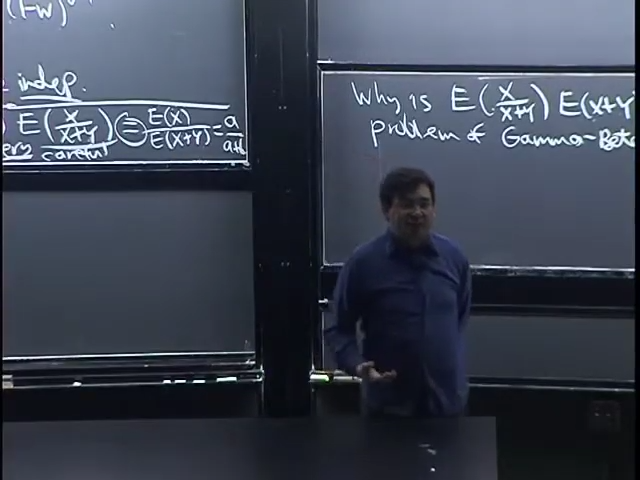 (1-w)
indep.
E(X/(X+Y)) = E(X)/E(X+Y) = a/a+b
careful
Why is E(X/(X+Y)) E(X+Y)
problem of Gamma-Beta